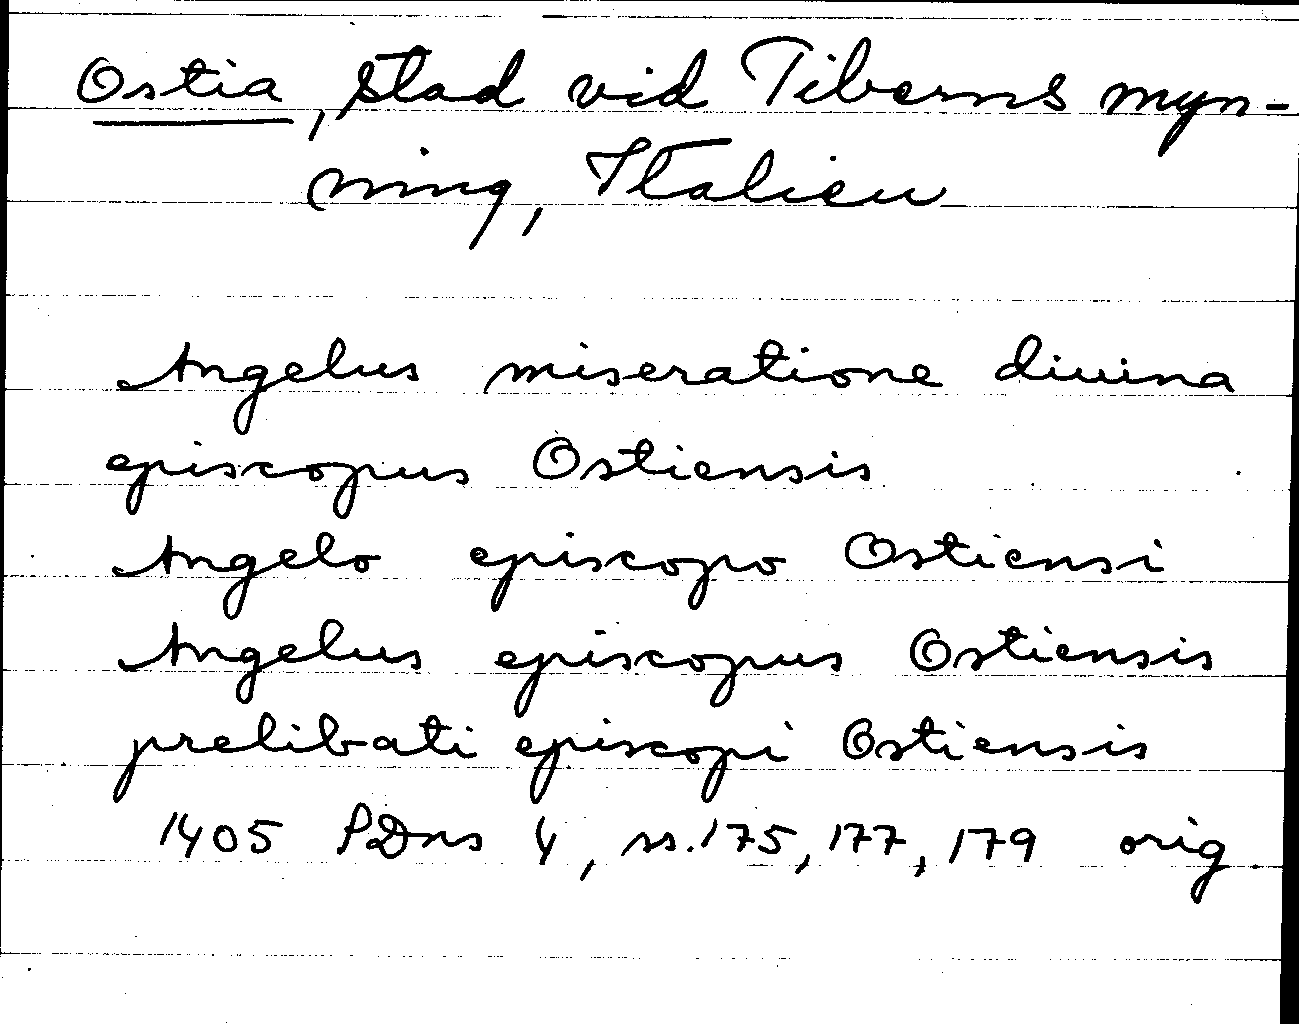 Ostia, stad vid Tiberns myn-
ning, Italien
Angelus miseratione diuina
episcopus Ostiensis
Angelo episcopo Ostiensi
Angelus episcopus Ostiensis
prelibati episcopi Ostiensis
1405 SDns 4, ss. 175, 177, 179 orig